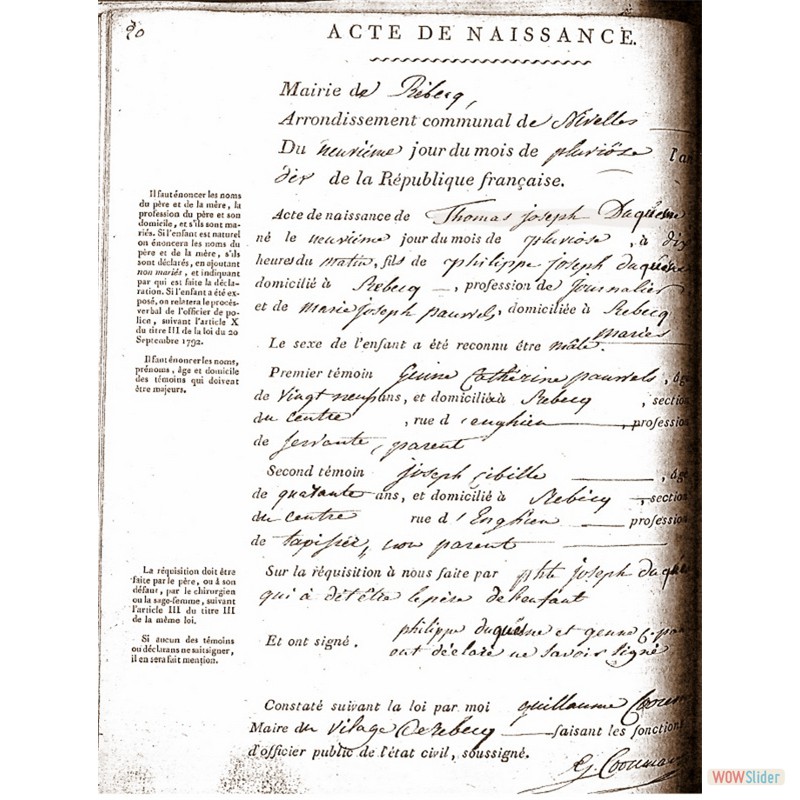 30
ACTE DE NAISSANCE.
Mairie de Rebecq,
Arrondissement communal de Nivelles
Du neuvième jour du mois de pluviôse l'an
dix de la République française.
Il faut énoncer les noms
du père et de la mère, la
profession du père et son
domicile, et s'ils sont ma-
riés. Si l'enfant est naturel
on énoncera les noms du
père et de la mère, s'ils
sont déclarés, en ajoutant
non mariés, et indiquant
par qui est faite la décla-
ration. Si l'enfant a été ex-
posé, on relatera le procès-
verbal de l'officier de po-
lice, suivant l'article X
du titre III de la loi du 20
Septembre 1792.
Il faut énoncer les noms,
prénoms, âge et domicile
des témoins qui doivent
être majeurs.
Acte de naissance de Thomas joseph Duquêsne
né le neuvième jour du mois de pluviose, à dix
heures du matin, fils de philippe joseph duquêsne
domicilié à Rebecq, profession de Journalier
et de marie joseph pauwels, domiciliée à Rebecq
mariés
Le sexe de l'enfant a été reconnu être mâle.
Premier témoin Catherine pauwels, âgé
de vingt neuf ans, et domicilié à Rebecq, section
du centre, rue d'enghien, profession
de servante, parent
Second témoin joseph cibille, âgé
de quarante ans, et domicilié à Rebecq, section
du centre rue d'Enghien profession
de non parent
La réquisition doit être
faite par le père, ou à son
défaut, par le chirurgien
ou la sage-femme, suivant
l'article III du titre III
de la même loi.
Si aucun des témoins
ou déclarans ne sait signer,
il en sera fait mention.
Sur la réquisition à nous faite par joseph
qui à dêt être le père de lenfant
Et ont signé. philippe duquêsne et
ont déclaré ne savoir signé
Constaté suivant la loi par moi guillaume
Maire du vilage de rebecq faisant les fonctions
d'officier public de l'état civil, soussigné.
WOWSlider